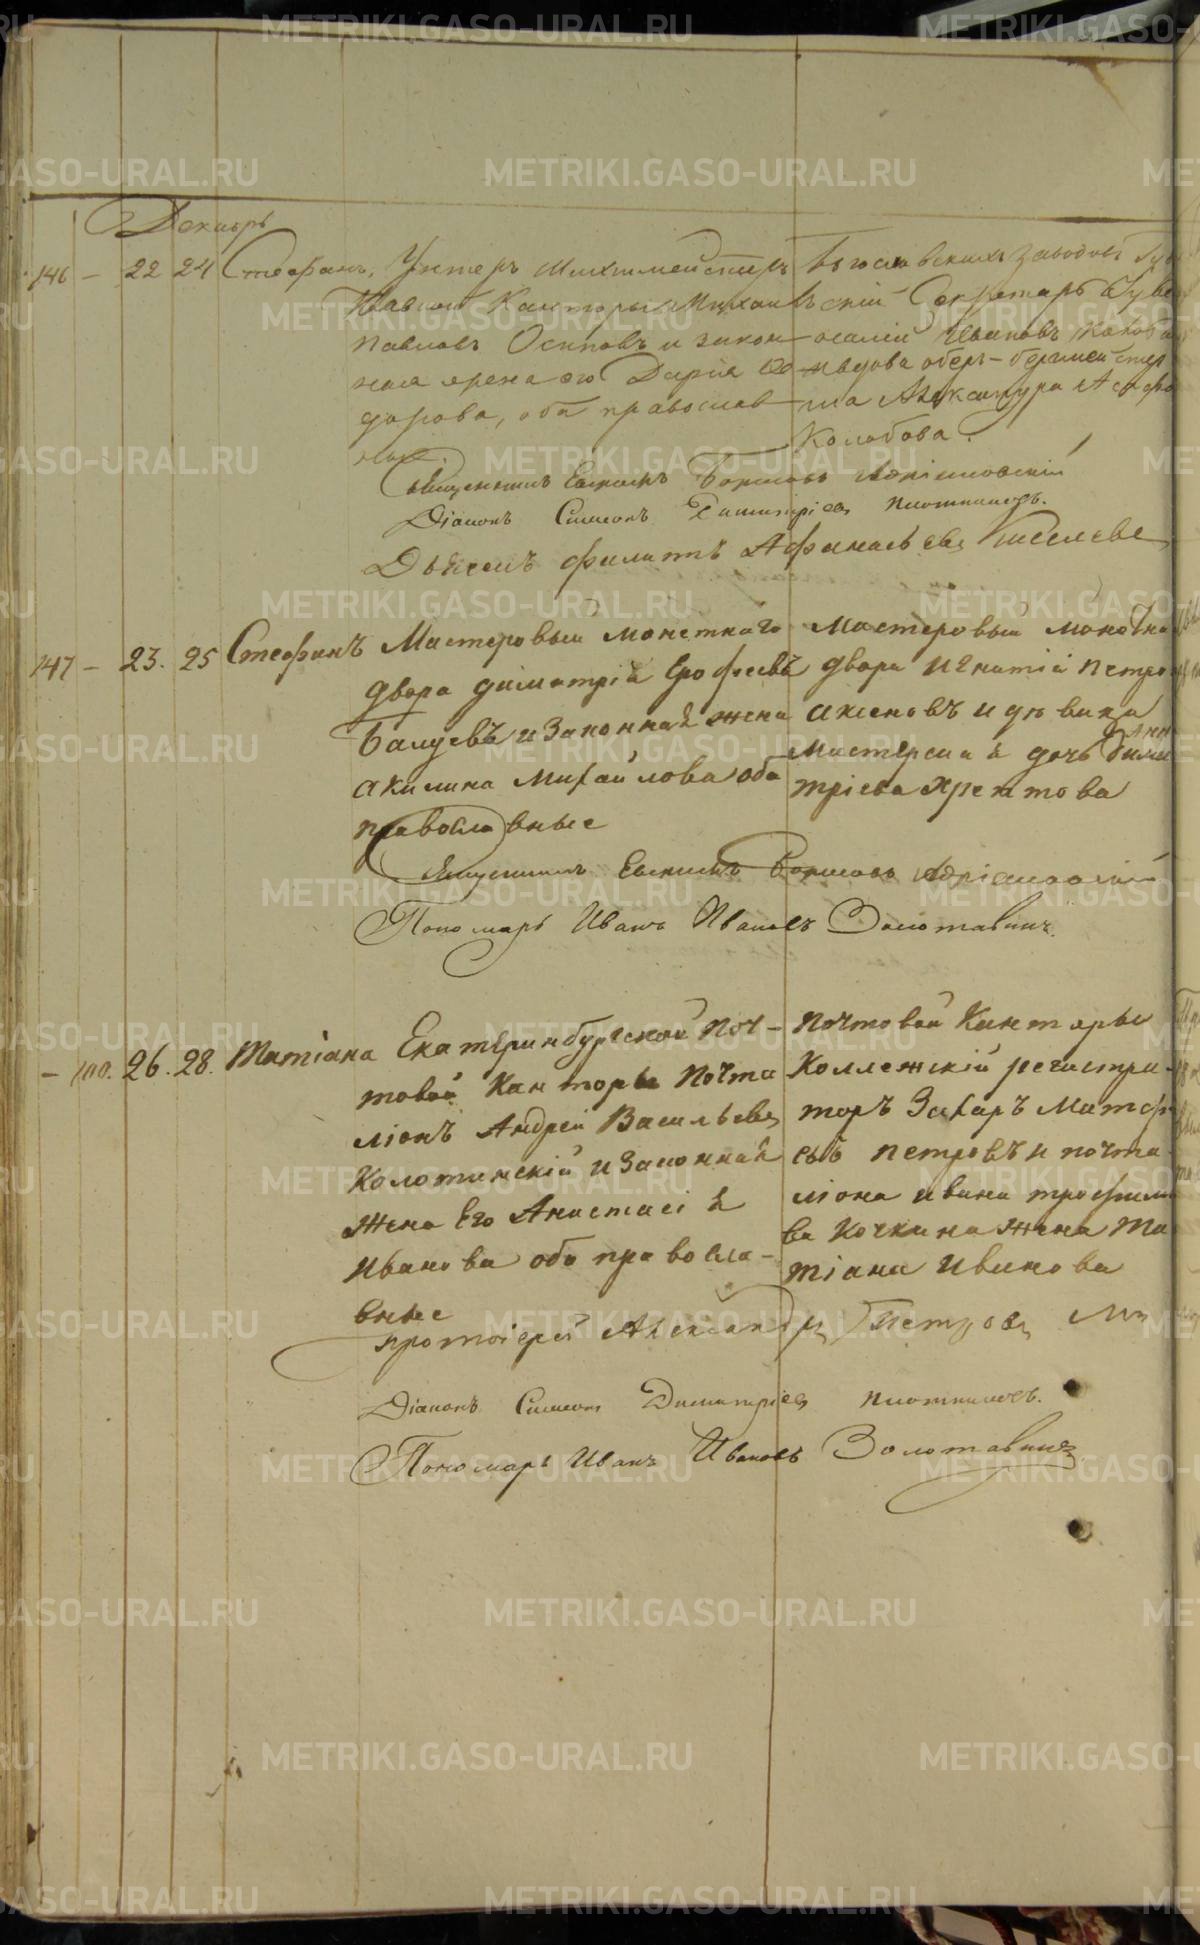 Декабрь
146 – 22 24 Стефанъ, Унтеръ Шихтмейстеръ
Главной Канторы Михаилъ
Павловъ Осиповъ и закон-
ная жена его Дарія Ѳео-
дорова, оба православ-
ные.
Богословскихъ заводовъ
Секретарь
Ивановъ
оберъ-бергмейстер
ша Александра
Колобова.
Священникъ Евгеній
Діаконъ Симеонъ Димитріевъ Плотниковъ.
Дьячекъ Филиппъ Афанасьевъ Киселевъ
147 – 23. 25 Стефанъ Мастеровый монетнаго
двора Димитрій Ерофеевъ
Балуевъ и Законная жена
Акилина Михайлова оба
православные
Мастеровый монетна
двора Игнатій Петро
Аксеновъ и девица
Мастерская дочь Анн
Дими
тріева Хрептова
Священникъ
Пономарь Иванъ Ивановъ Золотавинъ.
– 100. 26. 28. Татіана Екатеринбургской поч-
товой Канторы Почта
ліонъ Андрей Васильевъ
Колотинскій и Законная
Жена Его Анастасія
Иванова оба правосла-
вные
почтовой Канторы
Коллежскій регистра-
торъ Захаръ Матф
еевъ Петровъ и почта
ліона Ивана Трофимо
ва Кочкина Жена Та
тіана Иванова
протоіерей Александръ Петровъ
Діаконъ Симеонъ Димитріевъ Плотниковъ.
Пономарь Иванъ Ивановъ Золотавинъ
METRIKI.GASO-URAL.RU